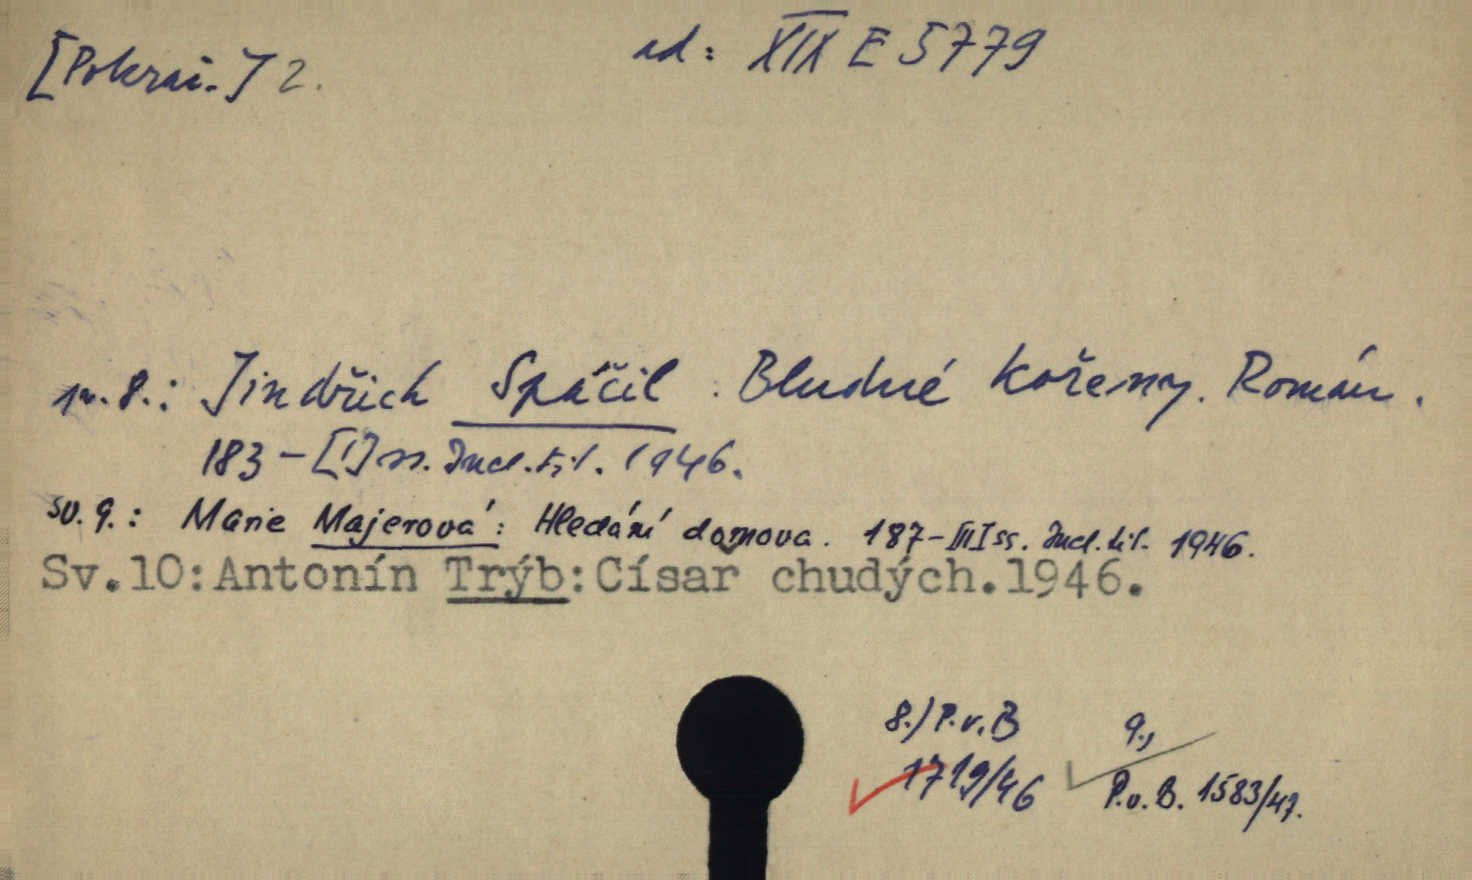 [Pokrač.] 2. ad: XIX E 5779
sv. 8.: Jindřich Spáčil. Bludné kořeny. Román.
183-[1] ss. Incl. tit. 1946.
sv. 9.: Marie Majerová: Hledání domova. 187-III ss. Incl. tit. 1946.
Sv.10:Antonín Trýb:Císař chudých.1946.
8.) P.v.B 9.,
1719/46 P.v.B. 1583/47.